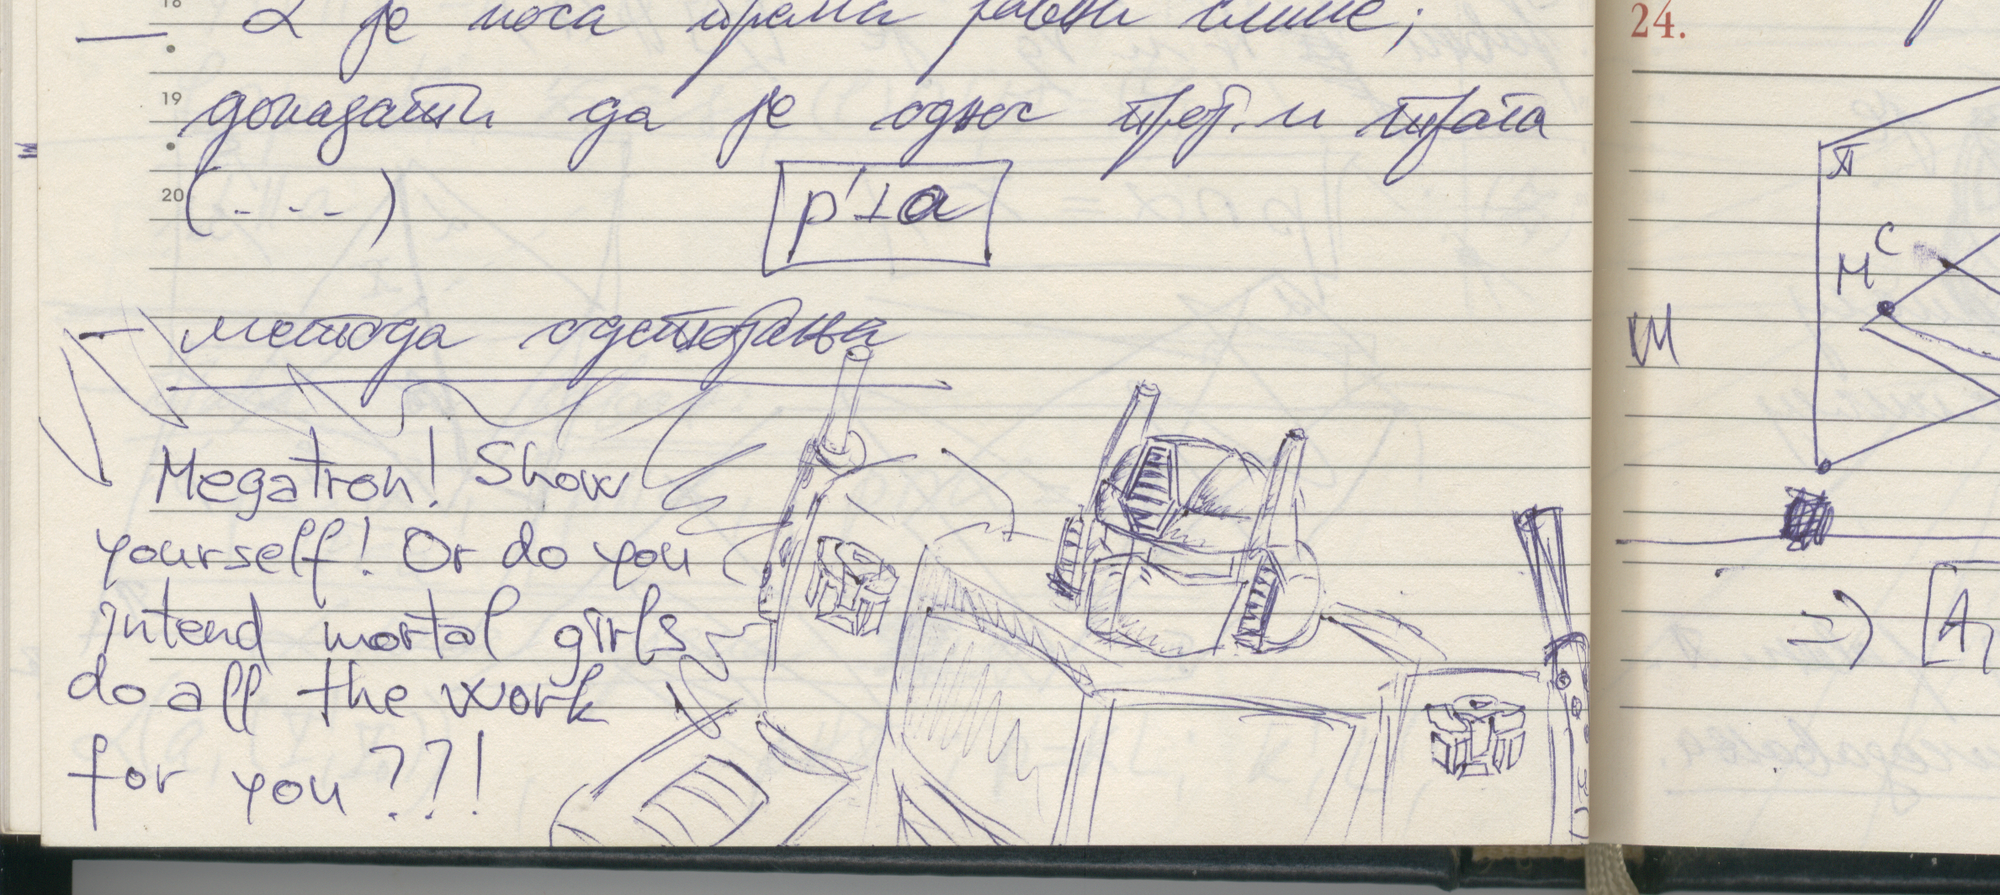 18
α је коса према равни слике;
19
доказати да је однос прој. и трага
20
(. - - -)
p'⊥a
- метода одстојања
Megatron! Show
yourself! Or do you
intend mortal girls
do all the work
for you??!
24.
π
C
M
Ш
=>